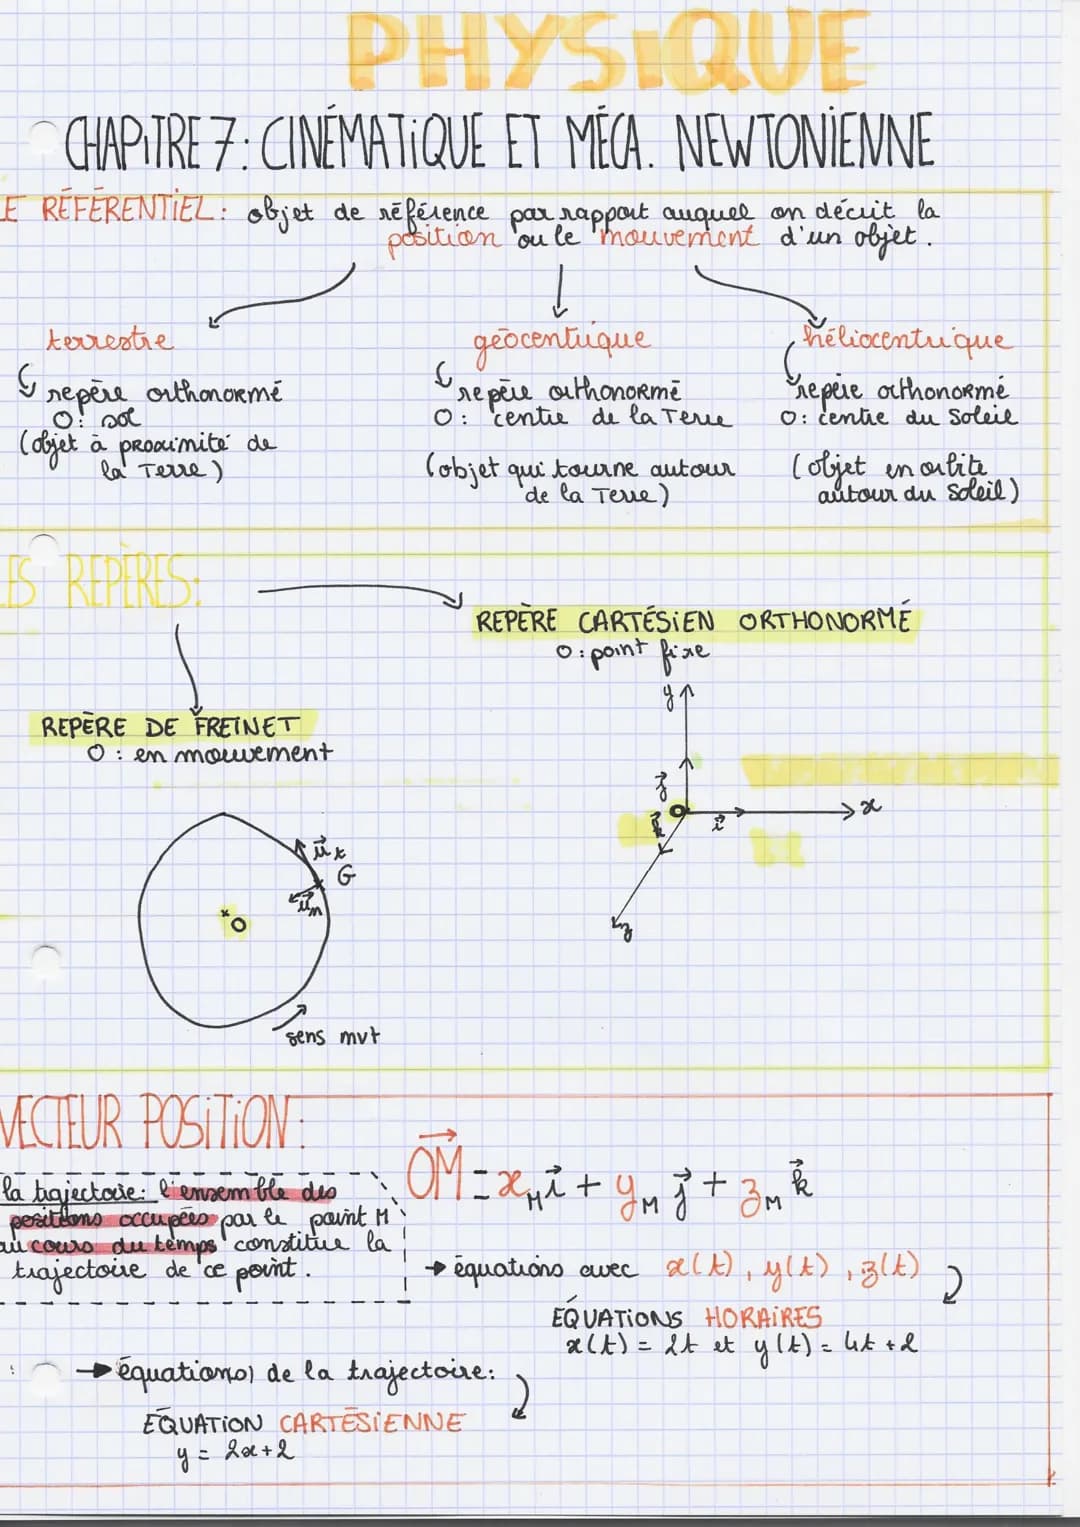 PHYSIQUE
CHAPITRE 7: CINÉMATIQUE ET MÉCA. NEWTONIENNE
LE RÉFÉRENTIEL: objet de référence par rapport auquel on décrit la
position ou le mouvement d'un objet.
terrestre
repère orthonormé
O: sol
(objet à proximité de
la Terre)
géocentrique
repère orthonormé
O: centre de la Terre
(objet qui tourne autour
de la Terre)
héliocentrique
repère orthonormé
O: centre du Soleil
(objet en orbite
autour du Soleil)
LES REPÈRES:
REPÈRE CARTÉSIEN ORTHONORMÉ
O: point fixe
y
j⃗
O
k⃗
i⃗
x
z
REPÈRE DE FREINET
O: en mouvement
u⃗t
G
u⃗n
O
sens mvt
VECTEUR POSITION:
la trajectoire: l'ensemble des
positions occupées par le point M
au cours du temps constitue la
trajectoire de ce point.
OM⃗ = xM i⃗ + yM j⃗ + zM k⃗
→ équations avec x(t), y(t), z(t)
ÉQUATIONS HORAIRES
x(t) = 2t et y(t) = 4t + 2
→ équation(s) de la trajectoire:
ÉQUATION CARTÉSIENNE
y = 2x+2